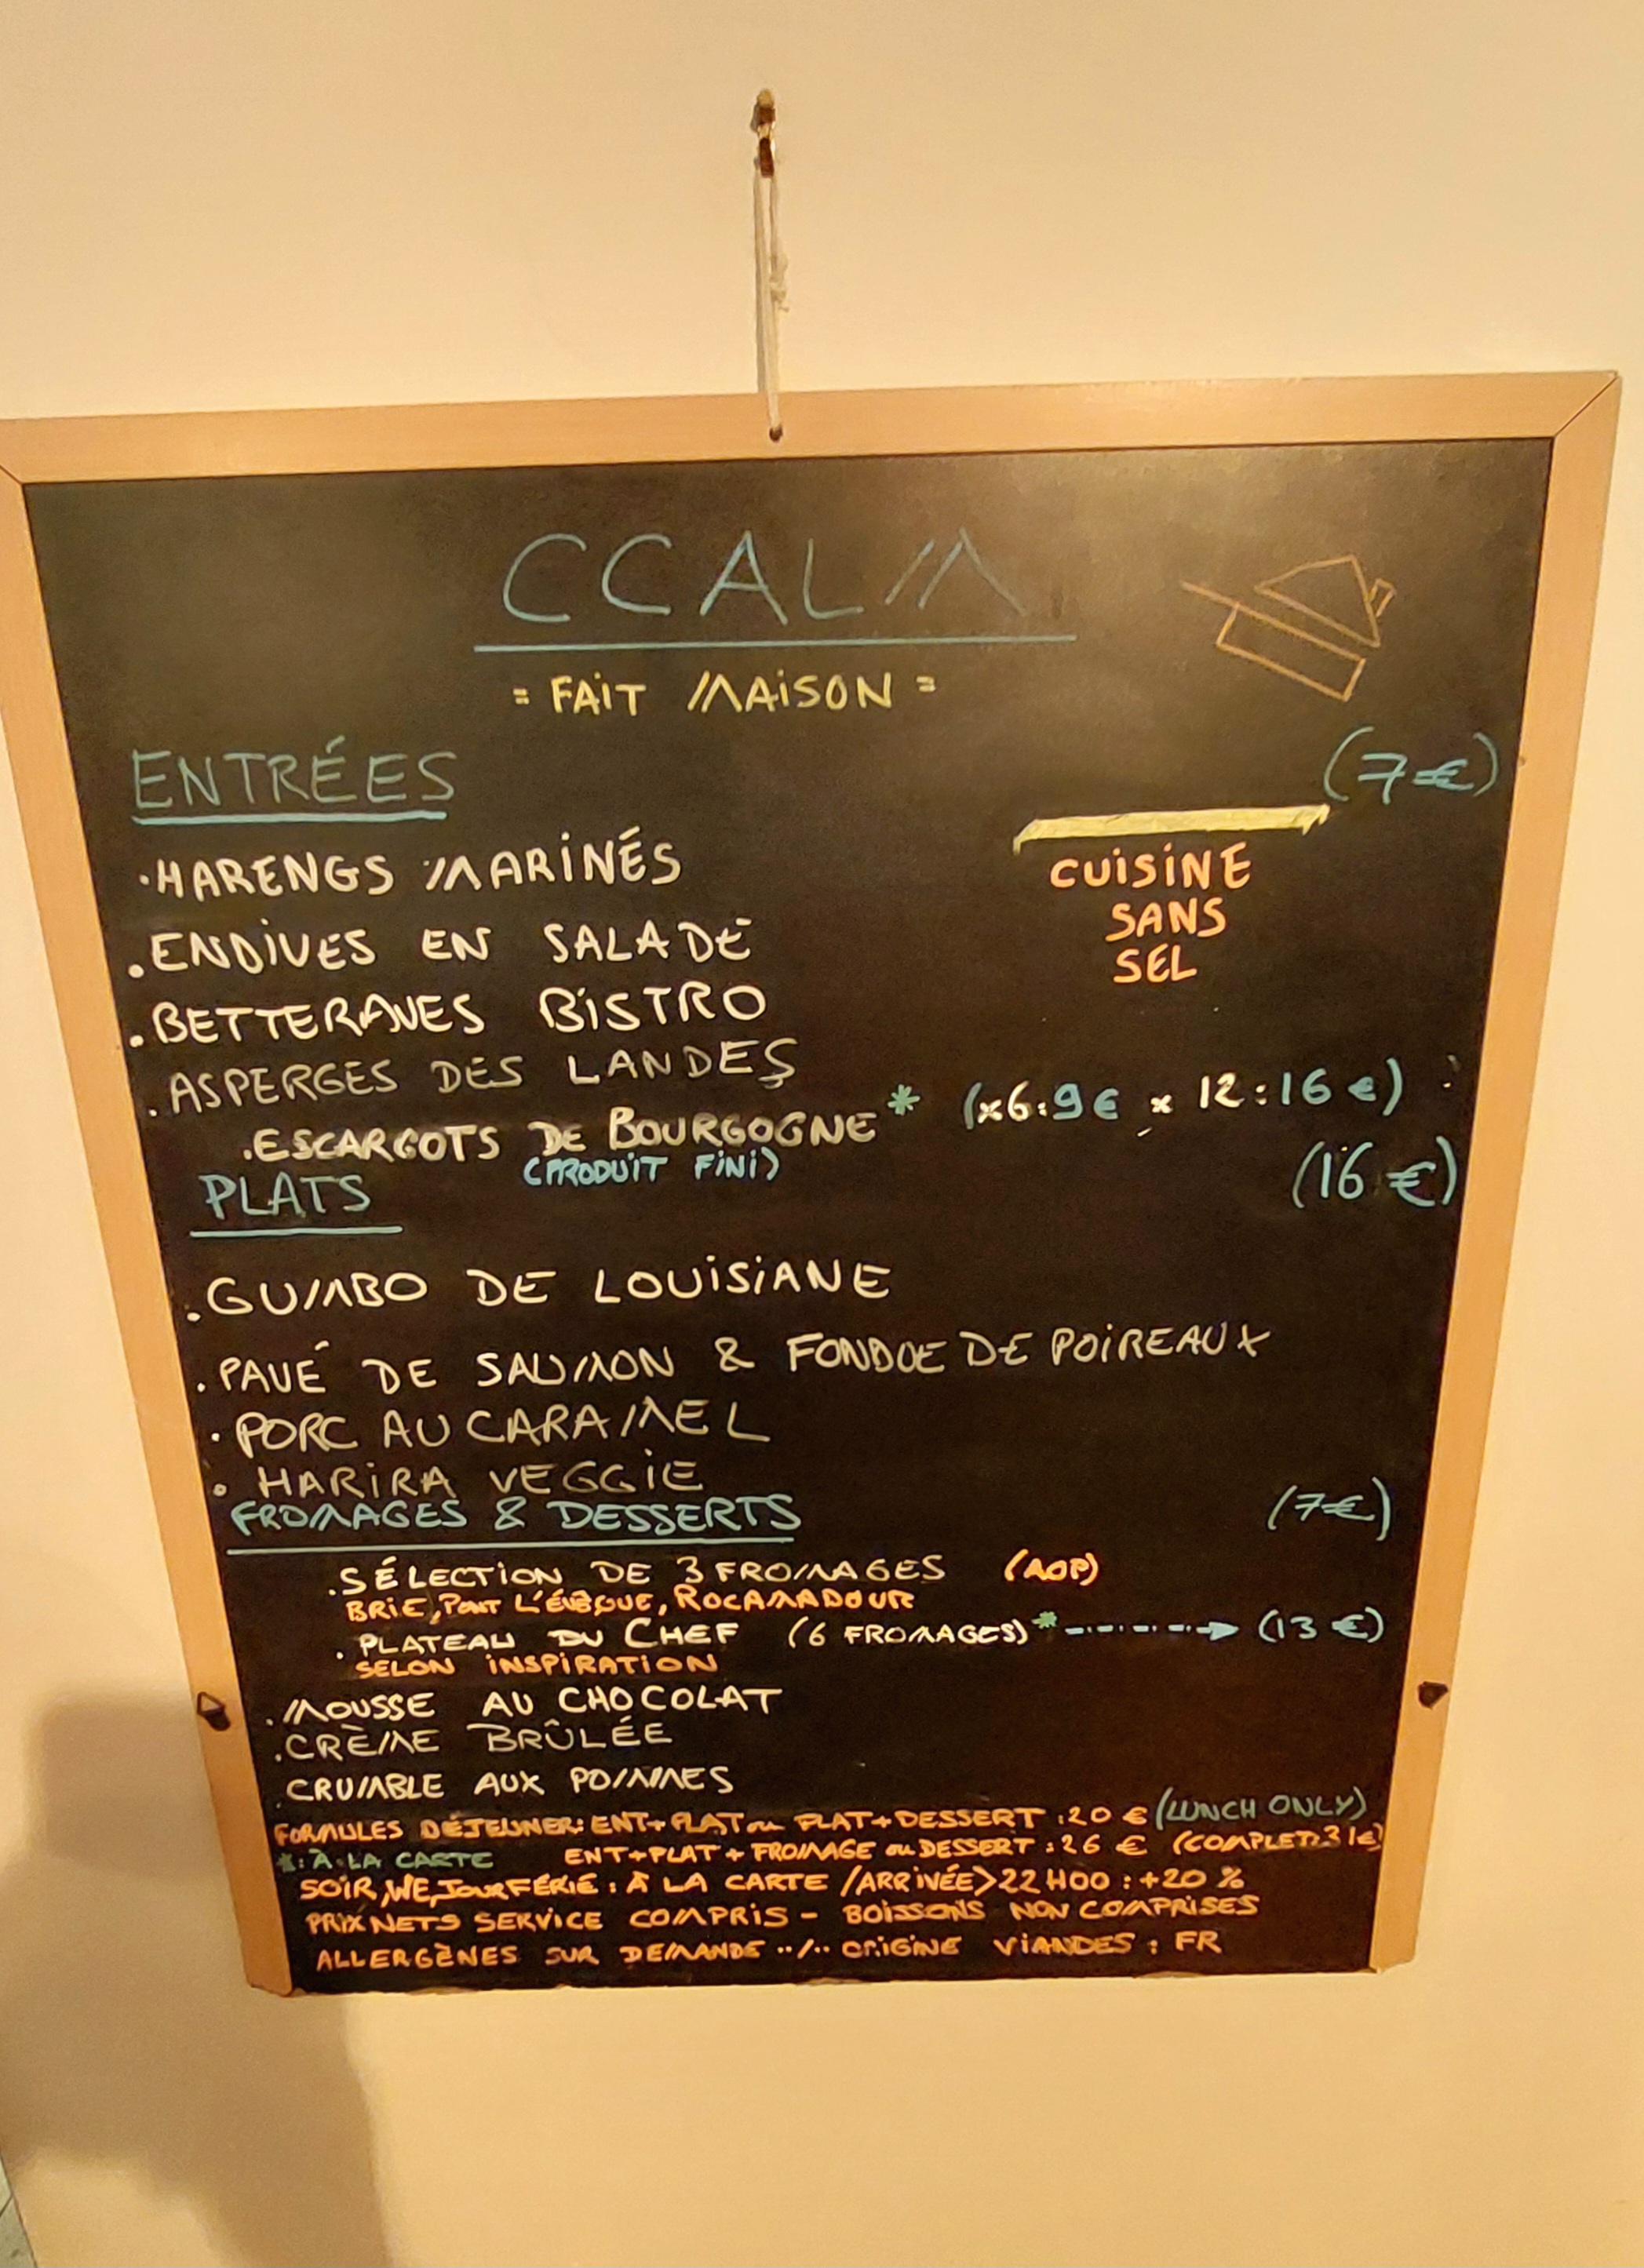 CCALM
= FAIT MAISON =
ENTRÉES (7€)
. HARENGS MARINÉS
CUISINE
SANS
SEL
. ENDIVES EN SALADE
. BETTERAVES BISTRO
. ASPERGES DES LANDES
. ESCARGOTS DE BOURGOGNE* (x6:9€ x 12:16€)
(PRODUIT FINI)
PLATS (16 €)
. GUMBO DE LOUISIANE
. PAVÉ DE SAUMON & FONDUE DE POIREAUX
. PORC AU CARAMEL
. HARIRA VEGGIE
FROMAGES & DESSERTS (7€)
. SÉLECTION DE 3 FROMAGES (AOP)
BRIE, PONT L'ÉVÊQUE, ROCAMADOUR
. PLATEAU DU CHEF (6 FROMAGES)* (13 €)
SELON INSPIRATION
. MOUSSE AU CHOCOLAT
. CRÈME BRÛLÉE
. CRUMBLE AUX POMMES
FORMULES DÉJEUNER: ENT+PLAT ou PLAT+DESSERT : 20 € (LUNCH ONLY)
*: À LA CARTE ENT+PLAT+FROMAGE ou DESSERT : 26 € (COMPLET:31€)
SOIR, WE, JOUR FÉRIÉ : À LA CARTE /ARRIVÉE>22H00 : +20 %
PRIX NETS SERVICE COMPRIS - BOISSONS NON COMPRISES
ALLERGÈNES SUR DEMANDE ../.. ORIGINE VIANDES : FR